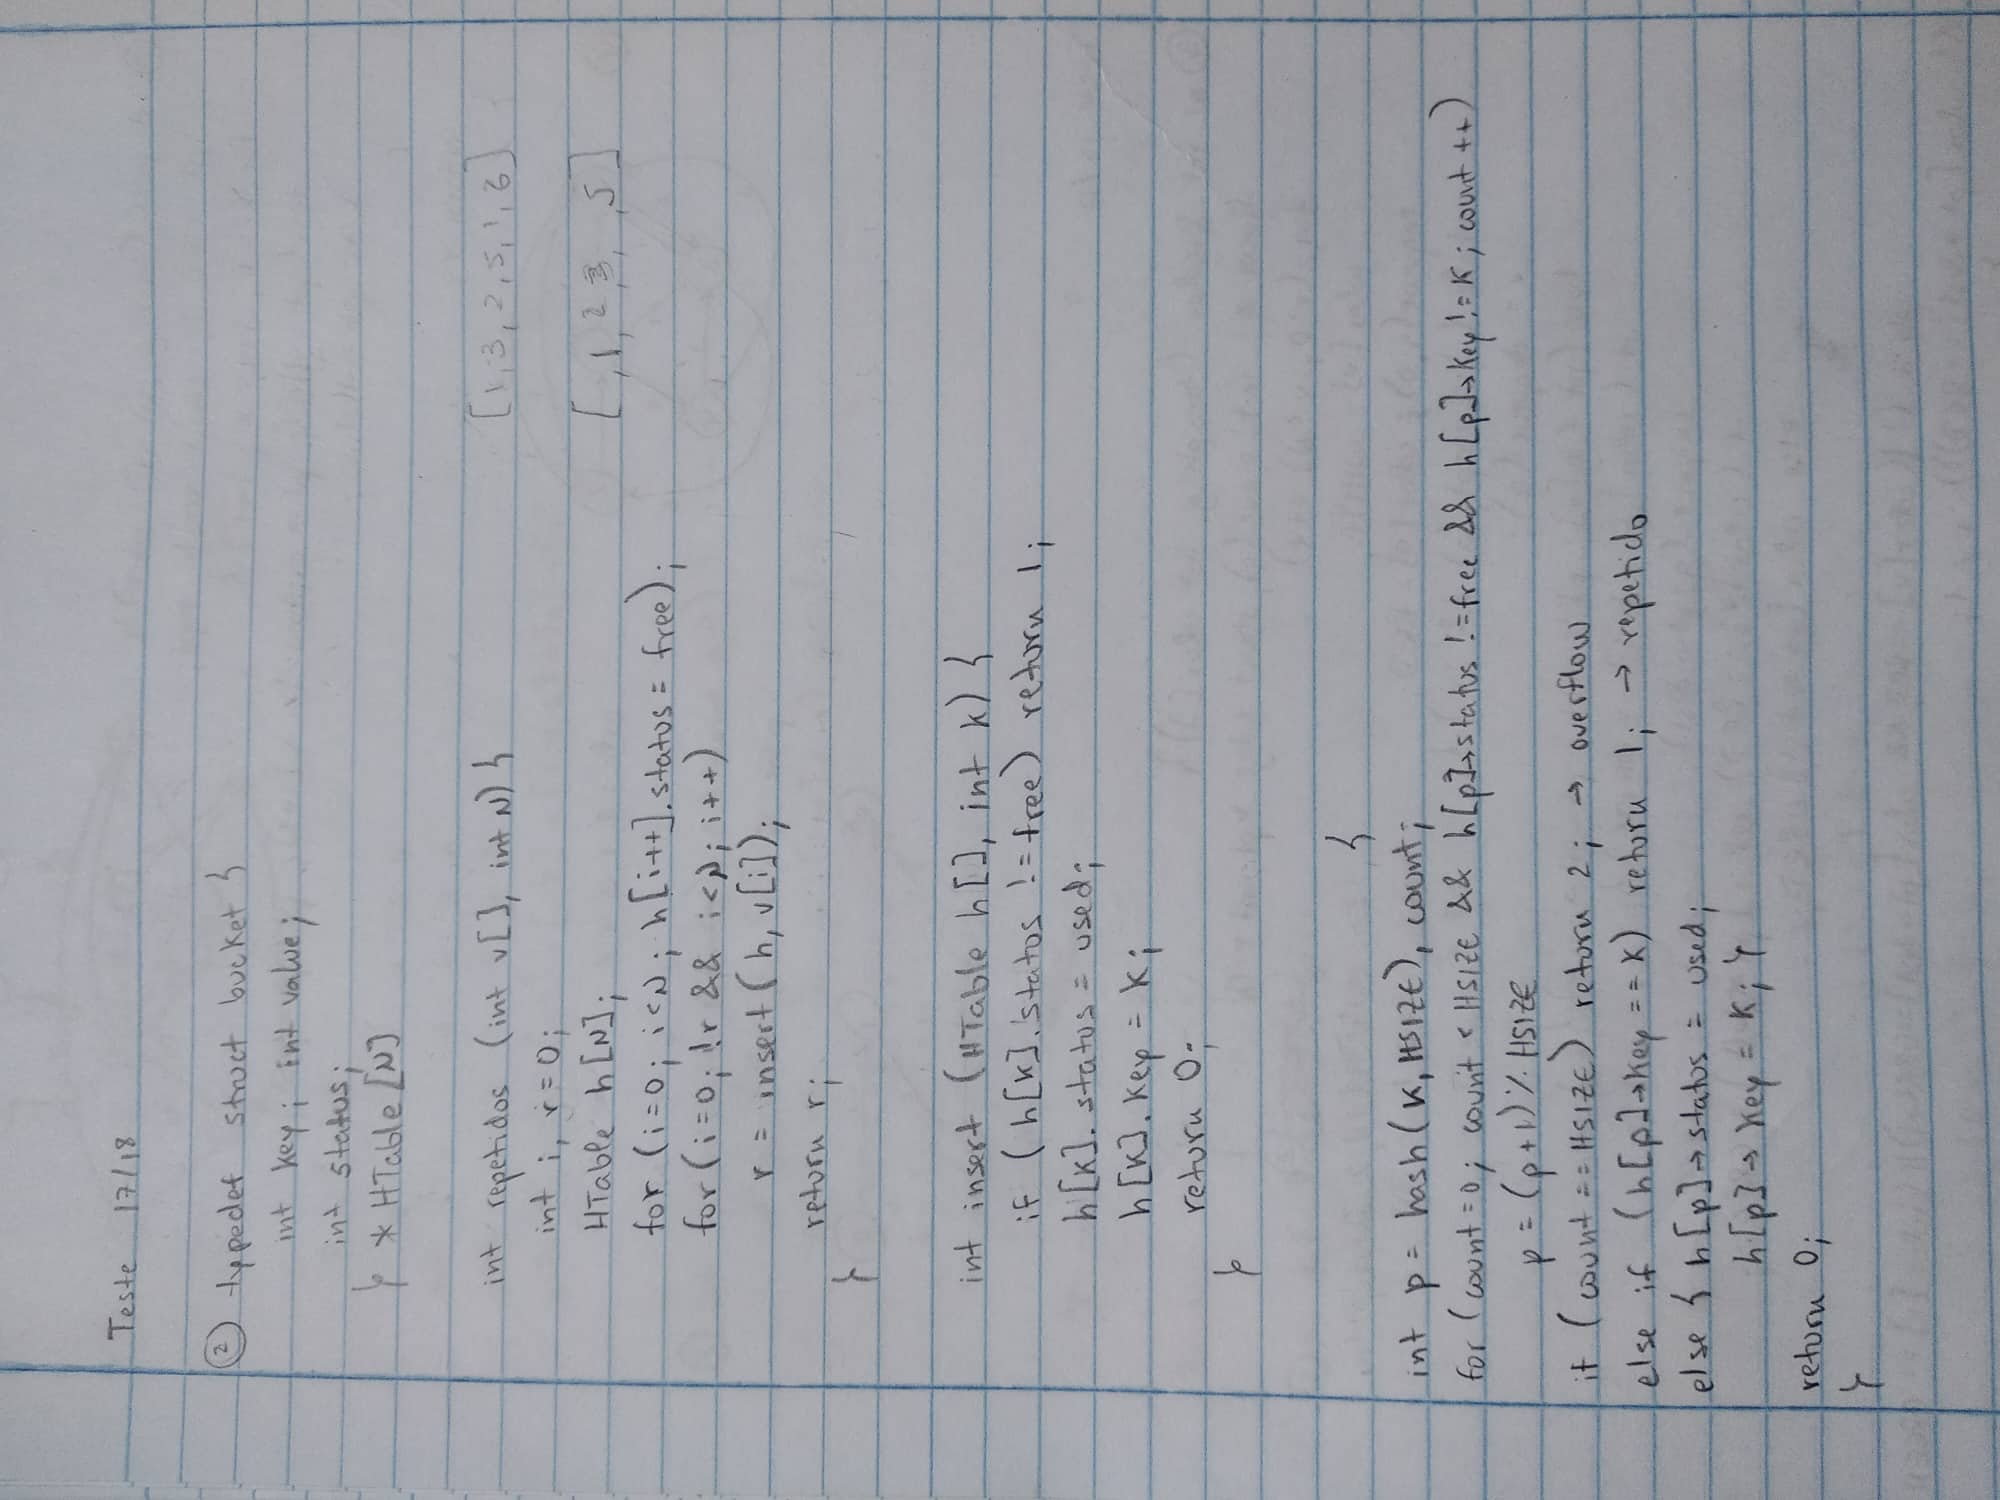 Teste 17/18
② typedef struct bucket {
int key; int value;
int status;
} * HTable [N]
int repetidos (int v[], int N) { [1,3,2,5,1,6]
int i, r=0;
HTable h[N]; [ ,1,2,3, ,5]
for (i=0; i<N; h[i++].status = free);
for (i=0; !r && i<N; i++)
r = insert (h, v[i]);
return r;
}
int insert (HTable h[], int k) {
if (h[k].status != free) return 1;
h[k].status = used;
h[k].key = k;
return 0;
}
{
int p = hash(k, HSIZE), count;
for (count=0; count < HSIZE && h[p]→status != free && h[p]→key != k; count++)
p = (p+1) % HSIZE
if (count == HSIZE) return 2; → overflow
else if (h[p]→key == k) return 1; → repetido
else { h[p]→status = used;
h[p]→key = k; }
return 0;
}